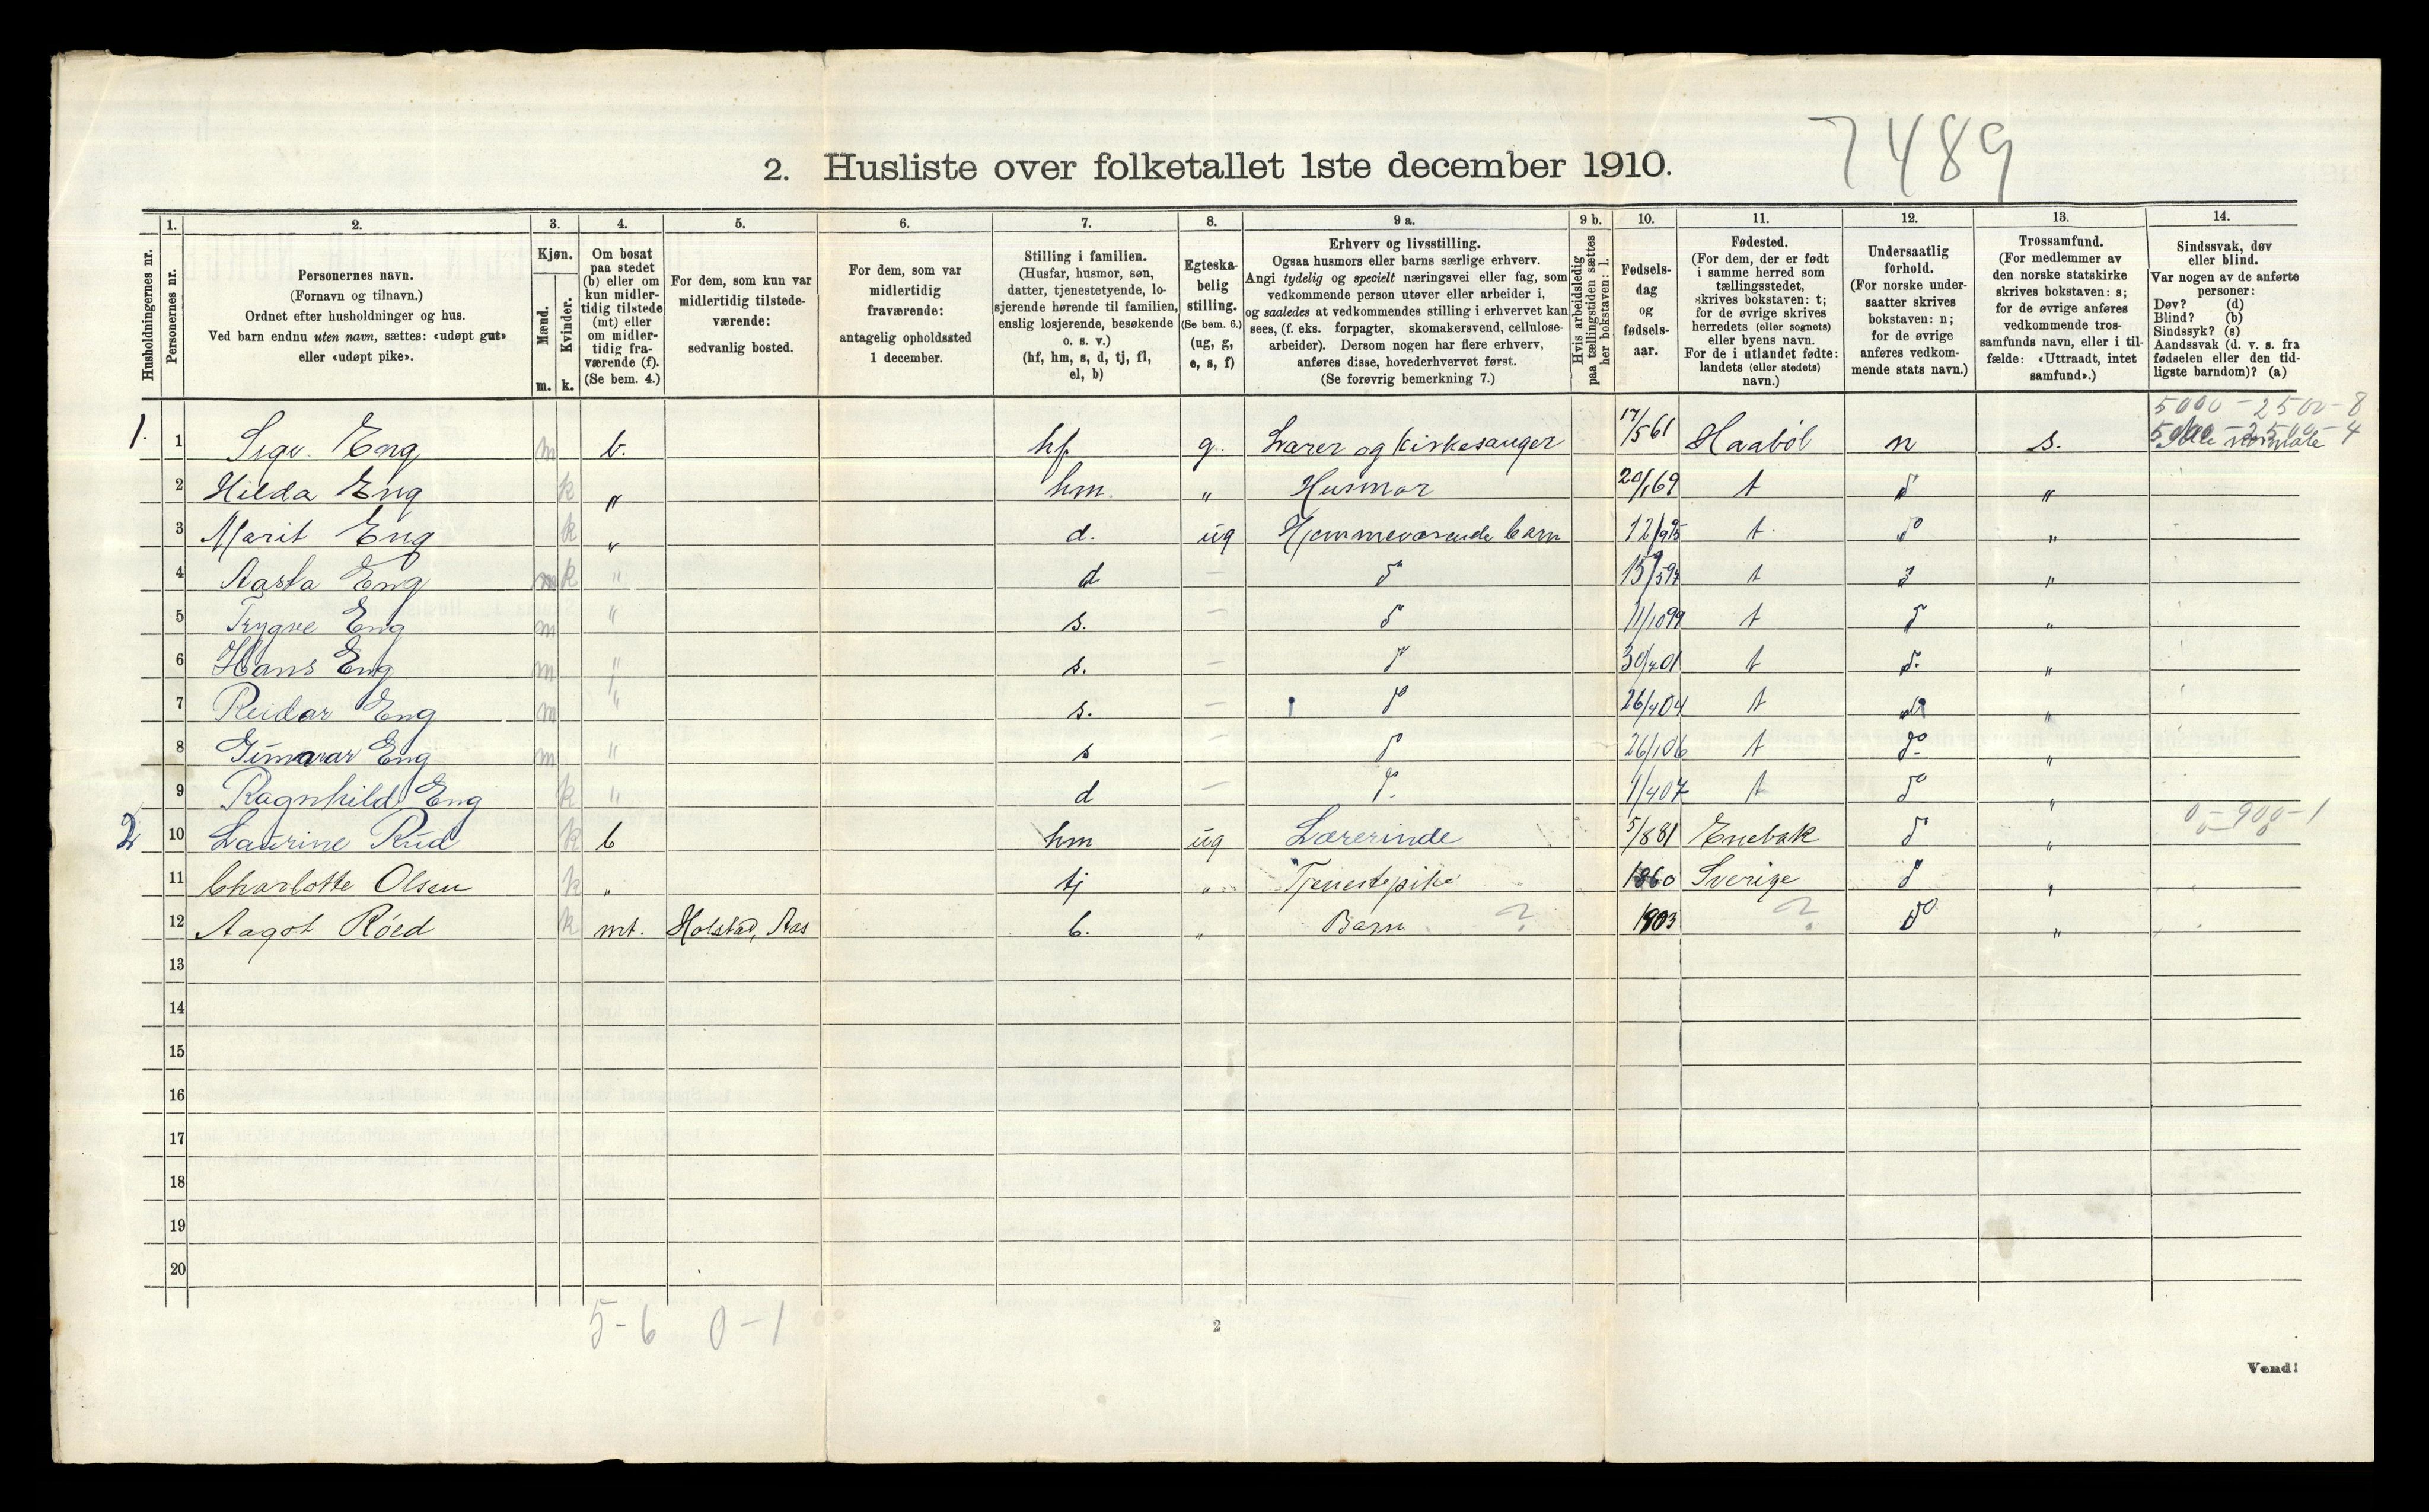 7489
2. Husliste over folketallet 1ste december 1910.
Husholdningernes nr.
1.
Personernes nr.
2.
Personernes navn.
(Fornavn og tilnavn.)
Ordnet efter husholdninger og hus.
Ved barn endnu uten navn, sættes: «udøpt gut»
eller «udøpt pike».
3.
Kjøn.
Mænd.
Kvinder.
m. k.
4.
Om bosat
paa stedet
(b) eller om
kun midler-
tidig tilstede
(mt) eller
om midler-
tidig fra-
værende (f).
(Se bem. 4.)
5.
For dem, som kun var
midlertidig tilstede-
værende:
sedvanlig bosted.
6.
For dem, som var
midlertidig
fraværende:
antagelig opholdssted
1 december.
7.
Stilling i familien.
(Husfar, husmor, søn,
datter, tjenestetyende, lo-
sjerende hørende til familien,
enslig losjerende, besøkende
o. s. v.)
(hf, hm, s, d, tj, fl,
el, b)
8.
Egteska-
belig
stilling.
(Se bem. 6.)
(ug, g,
e, s, f)
9 a.
Erhverv og livsstilling.
Ogsaa husmors eller barns særlige erhverv.
Angi tydelig og specielt næringsvei eller fag, som
vedkommende person utøver eller arbeider i,
og saaledes at vedkommendes stilling i erhvervet kan
sees, (f. eks. forpagter, skomakersvend, cellulose-
arbeider). Dersom nogen har flere erhverv,
anføres disse, hovederhvervet først.
(Se forøvrig bemerkning 7.)
9 b.
Hvis arbeidsledig
paa tællingstiden sættes
her bokstaven: l.
10.
Fødsels-
dag
og
fødsels-
aar.
11.
Fødested.
(For dem, der er født
i samme herred som
tællingsstedet,
skrives bokstaven: t;
for de øvrige skrives
herredets (eller sognets)
eller byens navn.
For de i utlandet fødte:
landets (eller stedets)
navn.)
12.
Undersaatlig
forhold.
(For norske under-
saatter skrives
bokstaven: n;
for de øvrige
anføres vedkom-
mende stats navn.)
13.
Trossamfund.
(For medlemmer av
den norske statskirke
skrives bokstaven: s;
for de øvrige anføres
vedkommende tros-
samfunds navn, eller i til-
fælde: «Uttraadt, intet
samfund».)
14.
Sindssvak, døv
eller blind.
Var nogen av de anførte
personer:
Døv? (d)
Blind? (b)
Sindssyk? (s)
Aandssvak (d. v. s. fra
fødselen eller den tid-
ligste barndom)? (a)
5000-2500-8
1. 1 Sigv. Eng m b. hf g. Lærer og Kirkesanger 17/5 61 Haabøl n s.
2 Hilda Eng k " hm. " Husmor 20/1 69 t do "
3 Marit Eng k " d. ug Hjemmeværende barn 12/9 95 t. do "
4 Aasta Eng k " d — do 15/5 97 t do "
5 Trygve Eng m " s. — do 11/10 99 t do "
6 Hans Eng m " s. — do 30/4 01 t do "
7 Reidar Eng m " s. — do 26/4 04 t do "
8 Gunnar Eng m " s — do 26/1 06 t do "
9 Ragnhild Eng k " d — do 1/4 07 t do "
0-900-1
2 10 Laurine Rud k b hm ug Lærerinde 5/8 81 Enebak do "
11 Charlotte Olsen k " tj " Tjenestepike 1860 Sverige do "
12 Aagot Röed k mt. Holstad, Aas b. " Barn ? 1903 ? do "
13
14
15
16
17
18
19
20
5-6 0-1
2
Vend!